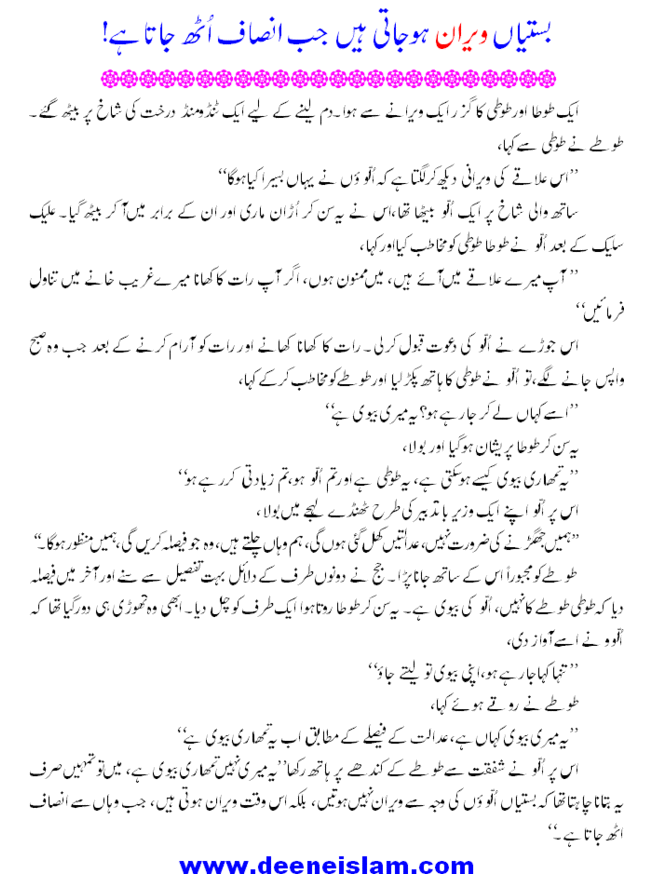 بستیاں ویران ہوجاتی ہیں جب انصاف اُٹھ جاتا ہے!
ایک طوطا اور طوطی کا گزر ایک ویرانے سے ہوا۔ دم لینے کے لیے ایک ٹنڈ منڈ درخت کی شاخ پر بیٹھ گئے۔
طوطے نے طوطی سے کہا،
’’اس علاقے کی ویرانی دیکھ کر لگتا ہے کہ اُلّوؤں نے یہاں بسیرا کیا ہوگا‘‘
ساتھ والی شاخ پر ایک اُلّو بیٹھا تھا، اس نے یہ سن کر اُڑان ماری اور ان کے برابر میں آ کر بیٹھ گیا۔ علیک
سلیک کے بعد اُلّو نے طوطا طوطی کو مخاطب کیا اور کہا،
’’آپ میرے علاقے میں آئے ہیں، میں ممنون ہوں، اگر آپ رات کا کھانا میرے غریب خانے میں تناول
فرمائیں‘‘
اس جوڑے نے اُلّو کی دعوت قبول کرلی۔ رات کا کھانا کھانے اور رات کو آرام کرنے کے بعد جب وہ صبح
واپس جانے لگے، تو اُلّو نے طوطی کا ہاتھ پکڑ لیا اور طوطے کو مخاطب کرکے کہا،
’’اسے کہاں لے کر جارہے ہو؟ یہ میری بیوی ہے‘‘
یہ سن کر طوطا پریشان ہوگیا اور بولا،
’’یہ تمھاری بیوی کیسے ہوسکتی ہے، یہ طوطی ہے اور تم اُلّو ہو، تم زیادتی کررہے ہو‘‘
اس پر اُلّو اپنے ایک وزیر باتدبیر کی طرح ٹھنڈے لہجے میں بولا،
’’ہمیں جھگڑنے کی ضرورت نہیں، عدالتیں کھل گئی ہوں گی، ہم وہاں چلتے ہیں، وہ جو فیصلہ کریں گی، ہمیں منظور ہوگا۔‘‘
طوطے کو مجبوراً اس کے ساتھ جانا پڑا۔ جج نے دونوں طرف کے دلائل بہت تفصیل سے سنے اور آخر میں فیصلہ
دیا کہ طوطی طوطے کا نہیں، اُلّو کی بیوی ہے۔ یہ سن کر طوطا روتا ہوا ایک طرف کو چل دیا۔ ابھی وہ تھوڑی ہی دور گیا تھا کہ
اُلّوو نے اسے آواز دی،
’’تنہا کہا جارہے ہو، اپنی بیوی تو لیتے جاؤ‘‘
طوطے نے روتے ہوئے کہا،
’’یہ میری بیوی کہاں ہے، عدالت کے فیصلے کے مطابق اب یہ تمھاری بیوی ہے‘‘
اس پر اُلّو نے شفقت سے طوطے کے کندھے پر ہاتھ رکھا ’’یہ میری نہیں تمھاری بیوی ہے، میں تو تمہیں صرف
یہ بتانا چاہتا تھا کہ بستیاں اُلّوؤں کی وجہ سے ویران نہیں ہوتیں، بلکہ اس وقت ویران ہوتی ہیں، جب وہاں سے انصاف
اٹھ جاتا ہے۔‘‘
www.deeneislam.com